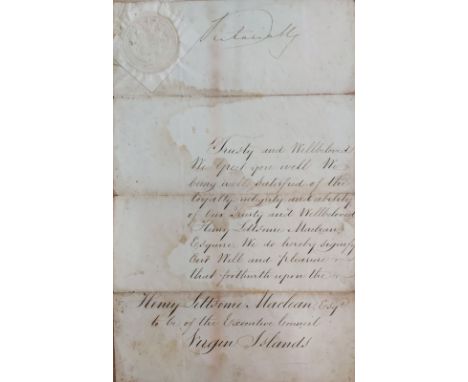 Victoria R
Trusty and Wellbeloved
We Greet you well. We
being well satisfied of the
Loyalty integrity and ability
of Our Trusty and Wellbeloved
Henry Lettsome Maclean
Esquire We do hereby signify
Our Will and pleasure
that forthwith upon the
Henry Lettsome Maclean, Esqr.
to be of the Executive Council
Virgin Islands